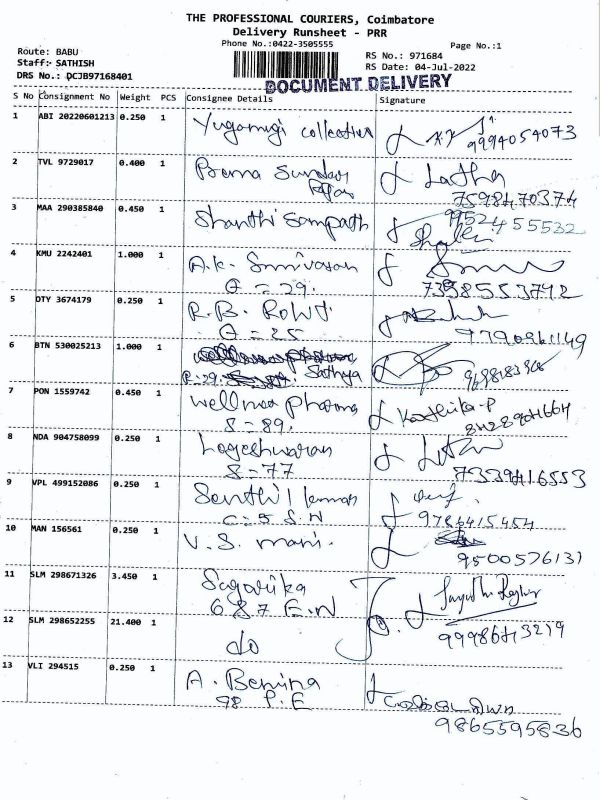 THE PROFESSIONAL COURIERS, Coimbatore
Delivery Runsheet - PRR
Phone No.:0422-3505555
Page No.:1
Route: BABU
Staff: SATHISH
DRS No.: DCJB97168401
RS No.: 971684
RS Date: 04-Jul-2022
DOCUMENT DELIVERY
S No Consignment No Weight PCS Consignee Details Signature
1 ABI 20220601213 0.250 1 collection
9994054073
2 TVL 9729017 0.400 1 Prema Sundar Latha
7598470374
3 MAA 290385840 0.450 1 Shanthi Sampath
9952455532
4 KMU 2242401 1.000 1 A.K. Srinivasan
= 29.
7358553792
5 OTY 3674179 0.250 1 R.B.
= 25
6 BTN 530025213 1.000 1
Sathya
7 PON 1559742 0.450 1 Wellness Pharma Karthika-P
S = 89.
8 NDA 904758099 0.250 1 Logeshwaran
S - 77
7339416553
9 VPL 499152086 0.250 1 Senthil kumar
9786415454
10 MAN 156561 0.250 1 V.S. mani.
9500576131
11 SLM 298671326 3.450 1 Sagarika
687 E.N
12 SLM 298652255 21.400 1 do
9998643219
13 VLI 294515 0.250 1 A. Benina
98 P.E
9865595836